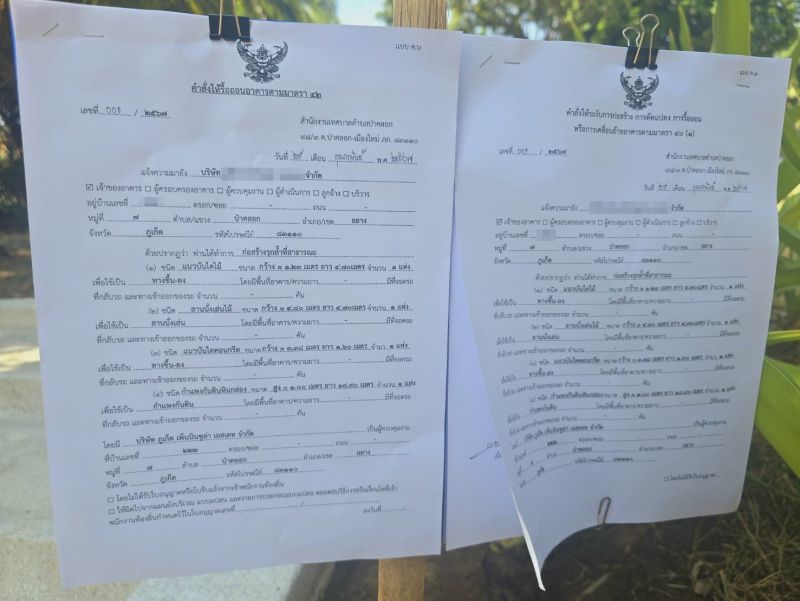 แบบ ค.๖
คำสั่งให้รื้อถอนอาคารตามมาตรา ๔๒
เลขที่ ๐๐๑ / ๒๕๖๗
สำนักงานเทศบาลตำบลป่าคลอก
๙๘/๓ ต.ป่าคลอก-เมืองใหม่ ภก. ๘๓๑๑๐
วันที่ ๒๙ เดือน กุมภาพันธ์ พ.ศ. ๒๕๖๗
แจ้งความมายัง บริษัท จำกัด
☑ เจ้าของอาคาร ☐ ผู้ครอบครองอาคาร ☐ ผู้ควบคุมงาน ☐ ผู้ดำเนินการ ☐ ลูกจ้าง ☐ บริวาร
อยู่บ้านเลขที่ ตรอก/ซอย - ถนน -
หมู่ที่ ๗ ตำบล/แขวง ป่าคลอก อำเภอ/เขต ถลาง
จังหวัด ภูเก็ต รหัสไปรษณีย์ ๘๓๑๑๐
ด้วยปรากฏว่า ท่านได้ทำการ ก่อสร้างรุกล้ำที่สาธารณะ
(๑) ชนิด แนวบันไดไม้ ขนาด กว้าง ๑.๒๓ เมตร ยาว ๔.๗๐เมตร จำนวน ๑ แห่ง
เพื่อใช้เป็น ทางขึ้น-ลง โดยมีพื้นที่อาคาร/ความยาว - มีที่จอดรถ
ที่กลับรถ และทางเข้าออกของรถ จำนวน - คัน
(๒) ชนิด ลานนั่งเล่นไม้ ขนาด กว้าง ๔.๘๐ เมตร ยาว ๔.๗๐เมตร จำนวน ๑ แห่ง
เพื่อใช้เป็น ลานนั่งเล่น โดยมีพื้นที่อาคาร/ความยาว - มีที่จอดรถ
ที่กลับรถ และทางเข้าออกของรถ จำนวน - คัน
(๓) ชนิด แนวบันไดคอนกรีต ขนาด กว้าง ๑.๖๐ เมตร จำนวน ๑ แห่ง
เพื่อใช้เป็น ทางขึ้น-ลง โดยมีพื้นที่อาคาร/ความยาว - มีที่จอดรถ
ที่กลับรถ และทางเข้าออกของรถ จำนวน - คัน
(๔) ชนิด กำแพงกันดินหินกล่อง ขนาด สูง ๑.๐๐ เมตร ยาว ๑๔.๙๐ เมตร จำนวน ๑ แห่ง
เพื่อใช้เป็น กำแพงกันดิน โดยมีพื้นที่อาคาร/ความยาว - มีที่จอดรถ
ที่กลับรถ และทางเข้าออกของรถ จำนวน - คัน
โดยมี บริษัท ภูเก็ต เพ็นนินซูล่า เอสเตท จำกัด เป็นผู้ควบคุมงาน
ที่บ้านเลขที่ ๒๒๒ ตรอก/ซอย - ถนน -
หมู่ที่ ๗ ตำบล ป่าคลอก อำเภอ/เขต ถลาง
จังหวัด ภูเก็ต รหัสไปรษณีย์ ๘๓๑๑๐
☐ โดยไม่ได้รับใบอนุญาตหรือใบรับแจ้งจากเจ้าพนักงานท้องถิ่น
☐ ให้ผิดไปจากแผนผังบริเวณ แบบแปลน และรายการประกอบแบบแปลน ตลอดจนวิธีการหรือเงื่อนไขที่เจ้า
พนักงานท้องถิ่นกำหนดไว้ในใบอนุญาตเลขที่ / ลงวันที่ /
แบบ ค.๓
คำสั่งให้ระงับการก่อสร้าง การดัดแปลง การรื้อถอน
หรือการเคลื่อนย้ายอาคารตามมาตรา ๔๐ (๑)
เลขที่ ๐๐๑ / ๒๕๖๗
สำนักงานเทศบาลตำบลป่าคลอก
๙๘/๓ ต.ป่าคลอก-เมืองใหม่ ภก. ๘๓๑๑๐
วันที่ ๒๙ เดือน กุมภาพันธ์ พ.ศ. ๒๕๖๗
แจ้งความมายัง จำกัด
☑ เจ้าของอาคาร ☐ ผู้ครอบครองอาคาร ☐ ผู้ควบคุมงาน ☐ ผู้ดำเนินการ ☐ ลูกจ้าง ☐ บริวาร
อยู่บ้านเลขที่ ตรอก/ซอย - ถนน
หมู่ที่ ๗ ตำบล/แขวง ป่าคลอก อำเภอ/เขต ถลาง
จังหวัด ภูเก็ต รหัสไปรษณีย์ ๘๓๑๑๐
ด้วยปรากฏว่า ท่านได้ทำการ ก่อสร้างรุกล้ำที่สาธารณะ
(๑) ชนิด แนวบันไดไม้ ขนาด กว้าง ๑.๒๓ เมตร ยาว ๔.๗๐เมตร จำนวน ๑ แห่ง
เพื่อใช้เป็น ทางขึ้น-ลง โดยมีพื้นที่อาคาร/ความยาว - มีที่จอดรถ
ที่กลับรถ และทางเข้าออกของรถ จำนวน - คัน
(๒) ชนิด ลานนั่งเล่นไม้ ขนาด กว้าง ๔.๘๐ เมตร ยาว ๔.๗๐เมตร จำนวน ๑ แห่ง
เพื่อใช้เป็น ลานนั่งเล่น โดยมีพื้นที่อาคาร/ความยาว - มีที่จอดรถ
ที่กลับรถ และทางเข้าออกของรถ จำนวน - คัน
(๓) ชนิด แนวบันไดคอนกรีต ขนาด กว้าง ๑.๖๐ เมตร จำนวน ๑ แห่ง
เพื่อใช้เป็น ทางขึ้น-ลง โดยมีพื้นที่อาคาร/ความยาว - มีที่จอดรถ
ที่กลับรถ และทางเข้าออกของรถ จำนวน - คัน
(๔) ชนิด กำแพงกันดินหินกล่อง ขนาด สูง ๑.๐๐ เมตร ยาว ๑๔.๙๐ เมตร จำนวน ๑ แห่ง
เพื่อใช้เป็น กำแพงกันดิน โดยมีพื้นที่อาคาร/ความยาว - มีที่จอดรถ
ที่กลับรถ และทางเข้าออกของรถ จำนวน - คัน
บริษัท ภูเก็ต เพ็นนินซูล่า เอสเตท จำกัด เป็นผู้ควบคุมงาน
๒๒๒ ตรอก/ซอย - ถนน -
ตำบล ป่าคลอก อำเภอ/เขต ถลาง
ภูเก็ต รหัสไปรษณีย์ ๘๓๑๑๐
☐ โดยไม่ได้รับใบอนุญาต